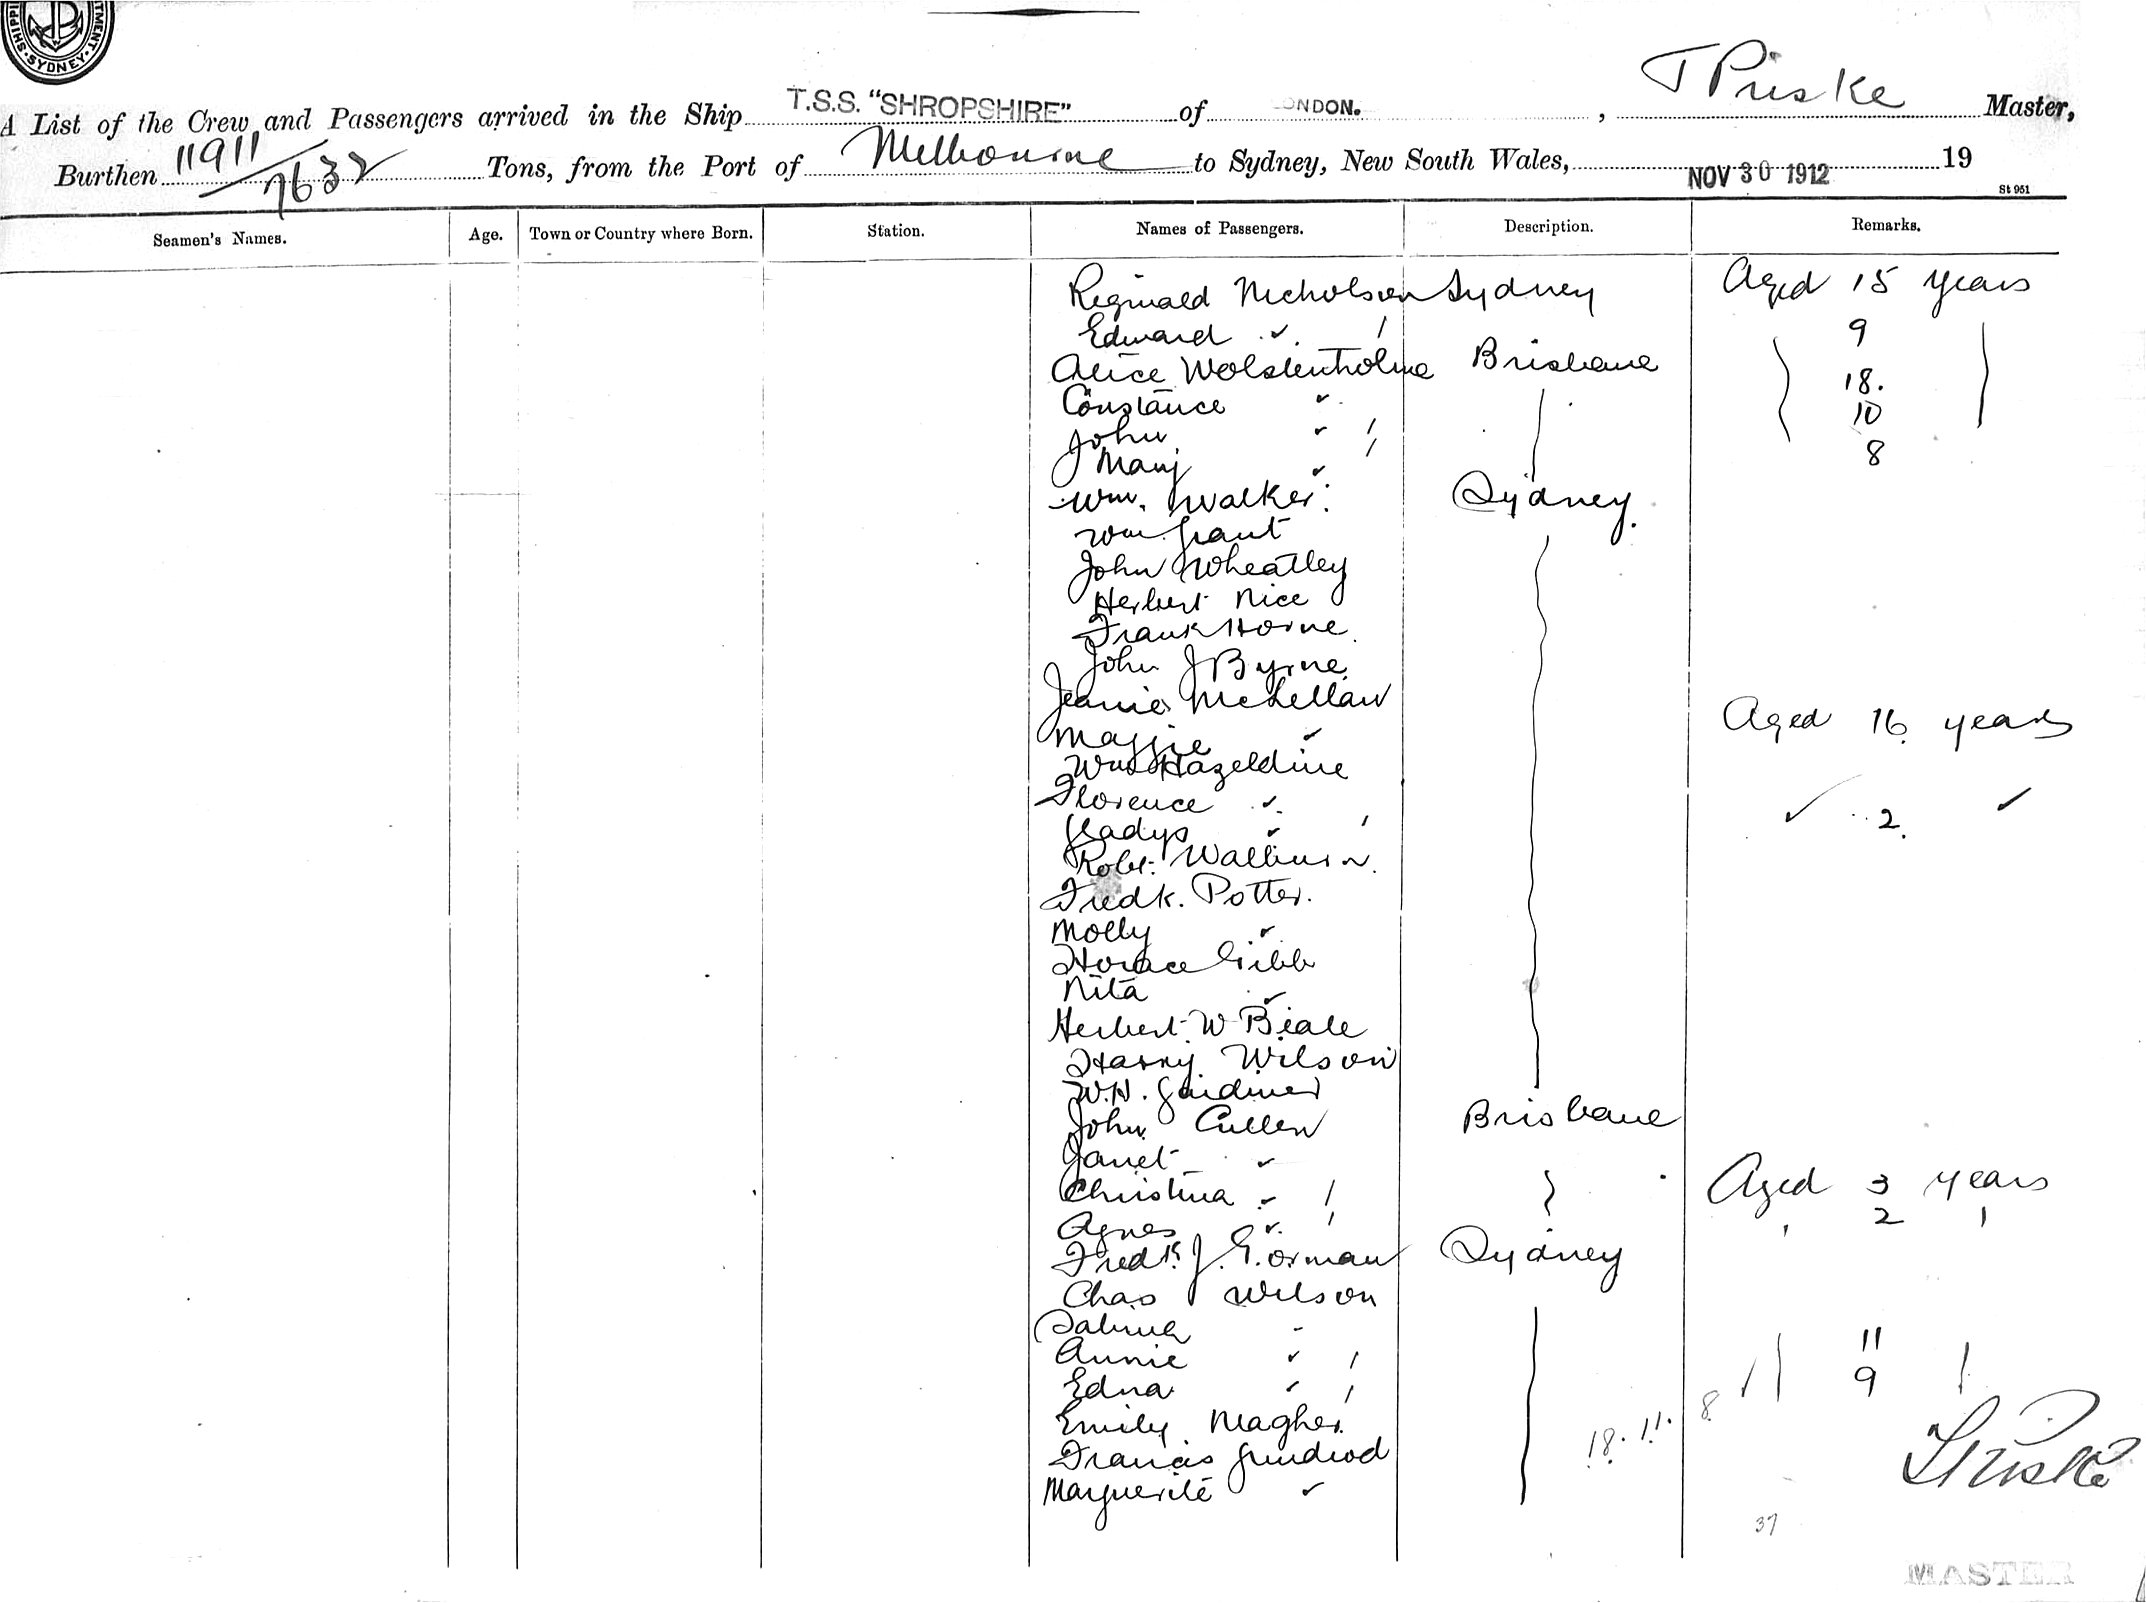 SHIPPI TMENT. SYDNEY.
A List of the Crew and Passengers arrived in the Ship T.S.S. "SHROPSHIRE" of LONDON. , T Priske Master,
Burthen 11911/7632 Tons, from the Port of Melbourne to Sydney, New South Wales, NOV 30 1912 19
St 951
Seamen's Names. Age. Town or Country where Born. Station. Names of Passengers. Description. Remarks.
Reginald Nicholson Sydney Aged 15 years
Edward 9
Alice Wolstenholme Brisbane
Constance 18.
John 10
Mary 8
Wm. Walker Sydney.
Wm Grant
John Wheatley
Herbert Nice
Frank Horne
John J Byrne
Jeanie McLellan
Maggie Aged 16 years
Wm Hazeldine
Florence
Gladys 2.
Robt. Walburn
Fredk. Potter.
Molly
Horace Gibb
Nita
Herbert W Beale
Harry Wilson
W.H. Gardiner
John Cullen Brisbane
Janet
Christina Aged 3 years
Agnes 2
Fredk. J. Gorman Sydney
Chas Wilson
Salina
Annie 11
Edna 9
Emily Magher 18. 11. 8
Francis Grindrod T Priske
Marguerite
37
MASTER